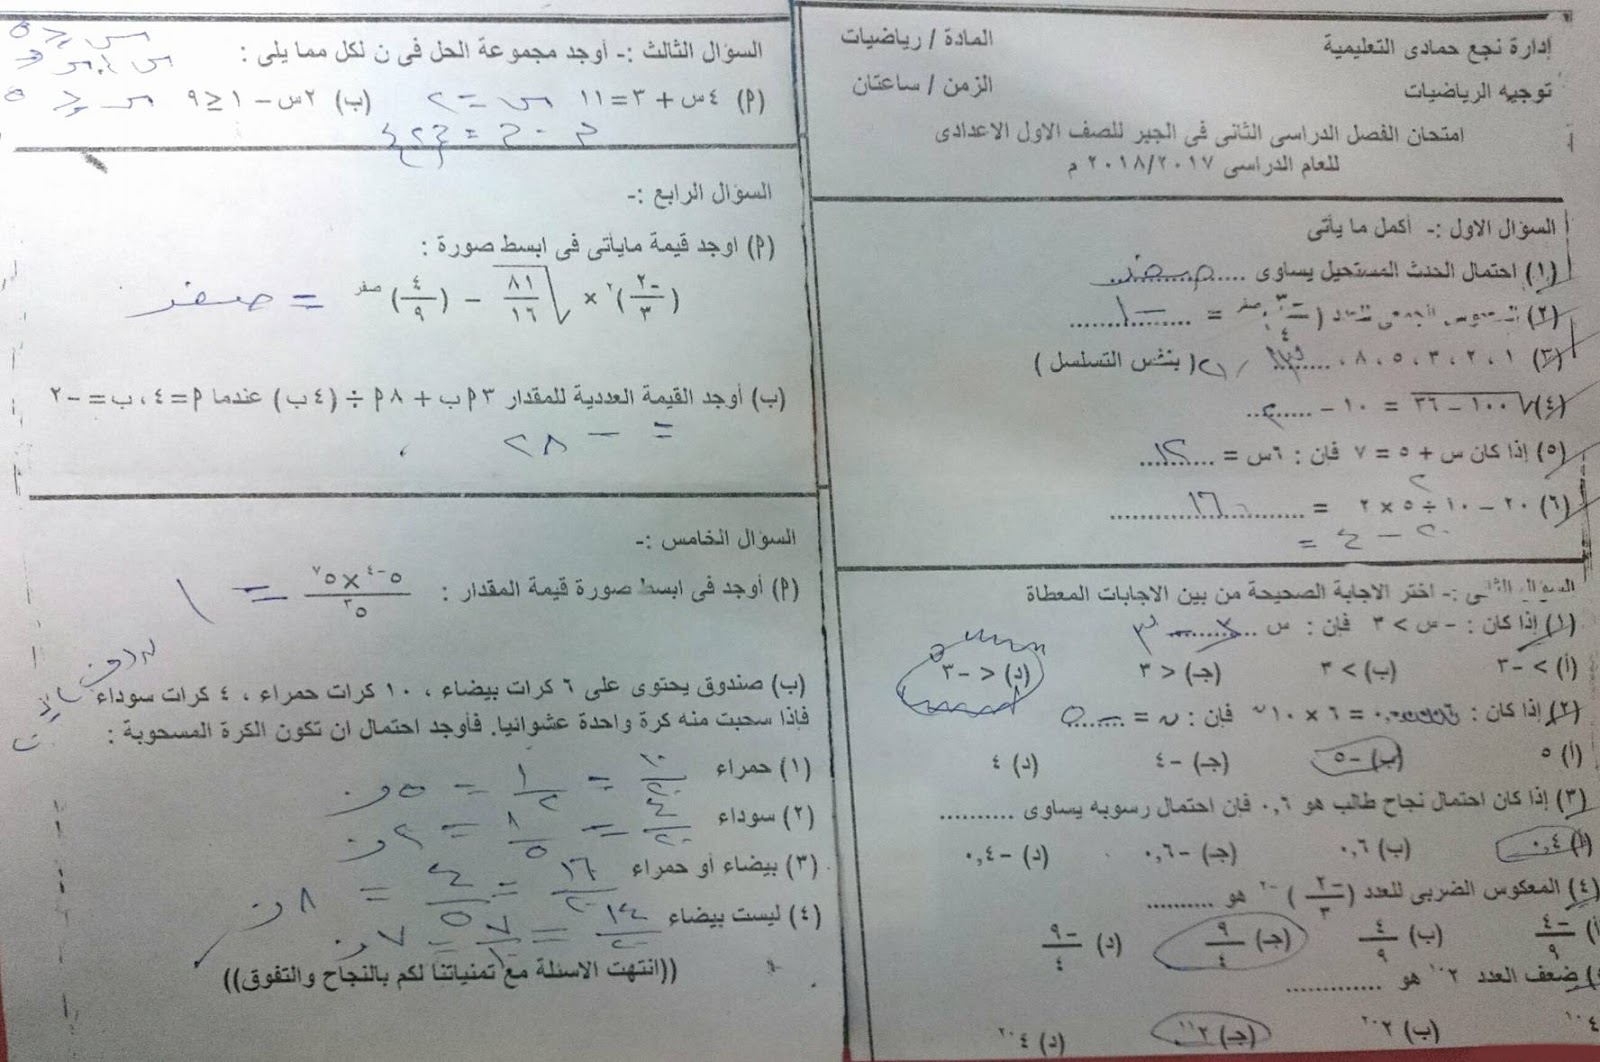 إدارة نجع حمادى التعليمية
المادة / رياضيات
توجيه الرياضيات
الزمن / ساعتان
امتحان الفصل الدراسى الثانى فى الجبر للصف الاول الاعدادى
للعام الدراسى ٢٠١٨/٢٠١٧ م
السؤال الاول :- أكمل ما يأتى
(١) احتمال الحدث المستحيل يساوى .......... صفر
(٢) المعكوس الجمعى للعدد (-٣/٤)صفر = -١
(٣) ١ ، ٢ ، ٣ ، ٥ ، ٨ ، ........ ( بنفس التسلسل )
(٤) √١٠٠ – ٣٦ = ١٠ – ........
(٥) إذا كان س + ٥ = ٧ فإن : ٦س = ١٢
(٦) ٢٠ – ١٠ ÷ ٥ × ٢ = ١٦
٢٠ – ٤ =
السؤال الثانى :- اختر الاجابة الصحيحة من بين الاجابات المعطاة
(١) إذا كان : - س > ٣ فإن : س ..........
(أ) > -٣ (ب) > ٣ (جـ) < ٣ (د) < -٣
(٢) إذا كان : = ٦ × ١٠ن فإن : ن = -٥
(أ) ٥ (ب) -٥ (جـ) -٤ (د) ٤
(٣) إذا كان احتمال نجاح طالب هو ٠,٦ فإن احتمال رسوبه يساوى ..........
(أ) ٠,٤ (ب) ٠,٦ (جـ) -٠,٦ (د) -٠,٤
(٤) المعكوس الضربى للعدد (-٢/٣)-٢ هو ..........
(أ) -٤/٩ (ب) ٤/٩ (جـ) ٩/٤ (د) -٩/٤
ضعف العدد ٢١٠ هو .............
٤١٠ (ب) ٢٢٠ (جـ) ٢١١ (د) ٤٢٠
السؤال الثالث :- أوجد مجموعة الحل فى ن لكل مما يلى :
(٩) ٤س + ٣ = ١١ س = ٢ (ب) ٢س – ١ ≥ ٩
م . ح = {٢}
السؤال الرابع :-
(٩) اوجد قيمة مايأتى فى ابسط صورة :
(-٢/٣)٢ × √٨١/١٦ – (٤/٩)صفر = صفر
(ب) أوجد القيمة العددية للمقدار ٣ ٩ ب + ٨ ٩ ÷ (٤ ب) عندما ٩ = ٤ ، ب = -٢
= – ٢٨
السؤال الخامس :-
(٩) أوجد فى ابسط صورة قيمة المقدار : ٥-٤ × ٥٧ / ٥٣ = ١
(ب) صندوق يحتوى على ٦ كرات بيضاء ، ١٠ كرات حمراء ، ٤ كرات سوداء
فإذا سحبت منه كرة واحدة عشوائيا. فأوجد احتمال ان تكون الكرة المسحوبة :
(١) حمراء ١٠/٢٠ = ١/٢ = ٥و٠
(٢) سوداء ٤/٢٠ = ١/٥ = ٢و٠
(٣) بيضاء أو حمراء ١٦/٢٠ = ٤/٥ = ٨و٠
(٤) ليست بيضاء ١٤/٢٠ = ٧/١٠ = ٧و٠
((انتهت الاسئلة مع تمنياتنا لكم بالنجاح والتفوق))